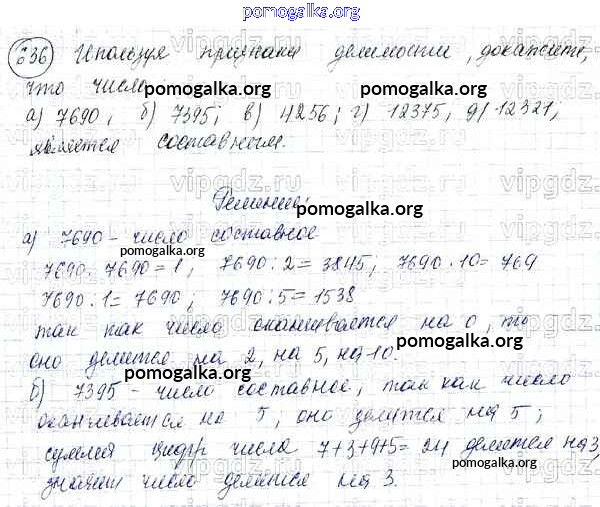 pomogalka.org
636 Используя признаки делимости, докажите,
что число
pomogalka.org pomogalka.org
а) 7690, б) 7395; в) 4256; г) 12375, д) 12321;
является составным.
vipgdz.ru vipgdz.ru vipgdz.ru
Решение:
pomogalka.org
а) 7690 - число составное
pomogalka.org
7690:7690=1; 7690:2=3845; 7690:10=769
7690:1=7690; 7690:5=1538
vipgdz.ru vipgdz.ru vipgdz.ru
так как число оканчивается на 0, то
оно делится на 2, на 5, на 10.
pomogalka.org
pomogalka.org
б) 7395 - число составное, так как число
оканчивается на 5, оно делится на 5;
vipgdz.ru vipgdz.ru vipgdz.ru
сумма цифр числа 7+3+9+5=24 делится на 3,
pomogalka.org
значит число делится на 3.